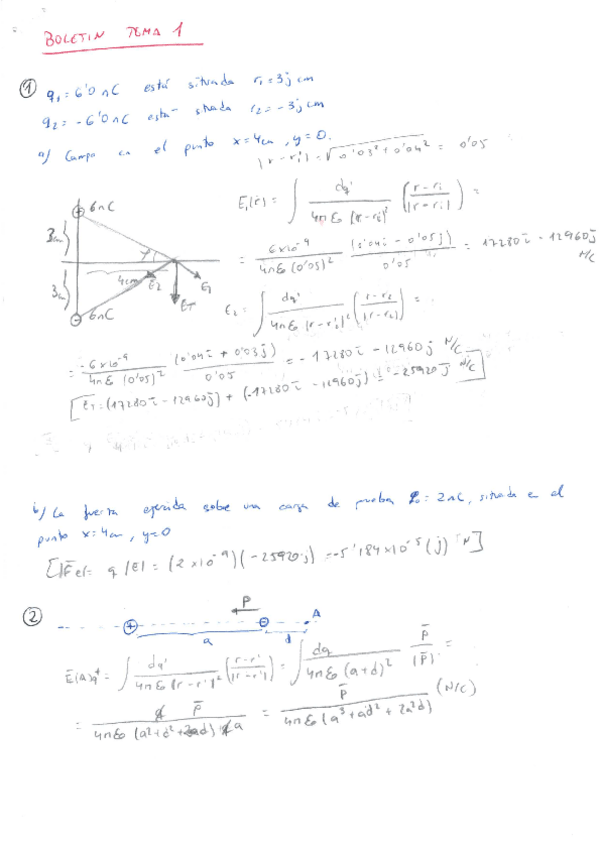 BOLETIN TEMA 1
① q₁ = 6'0 nC está situada r₁ = 3j cm
q₂ = -6'0 nC está situada r₂ = -3j cm
a) Campo en el punto x = 4cm, y = 0.
|r - r'| = √(0'03² + 0'04²) = 0'05
6nC
E₁(r) = ∫ dq' / 4πε₀ |r - rᵢ|² (r - rᵢ / |r - rᵢ|) =
3cm
= 6x10⁻⁹ / 4πε₀ (0'05)² (0'04i - 0'05j) / 0'05 = 17280i - 12960j N/C
4cm E₂ E₁
3cm ET
6nC
E₂ = ∫ dq' / 4πε₀ |r - r'₂|² (r - r₂ / |r - r₂|) =
= -6x10⁻⁹ / 4πε₀ (0'05)² (0'04i + 0'03j) / 0'05 = -17280i - 12960j N/C
[ET = (17280i - 12960j) + (-17280i - 12960j) = -25920j N/C]
b) La fuerza ejercida sobre una carga de prueba q₀ = 2nC, situada en el
punto x = 4cm, y = 0
[|Fe| = q |E| = (2x10⁻⁹)(-25920j) = -5'184x10⁻⁵ (j) N]
② P
A
a d
E(A)q⁺ = ∫ dq' / 4πε₀ |r - r'|² (r - r' / |r - r'|) = ∫ dq / 4πε₀ (a+d)² P / |P| =
= q P / 4πε₀ (a² + d² + 2ad) q a = P / 4πε₀ (a³ + ad² + 2a²d) (N/C)